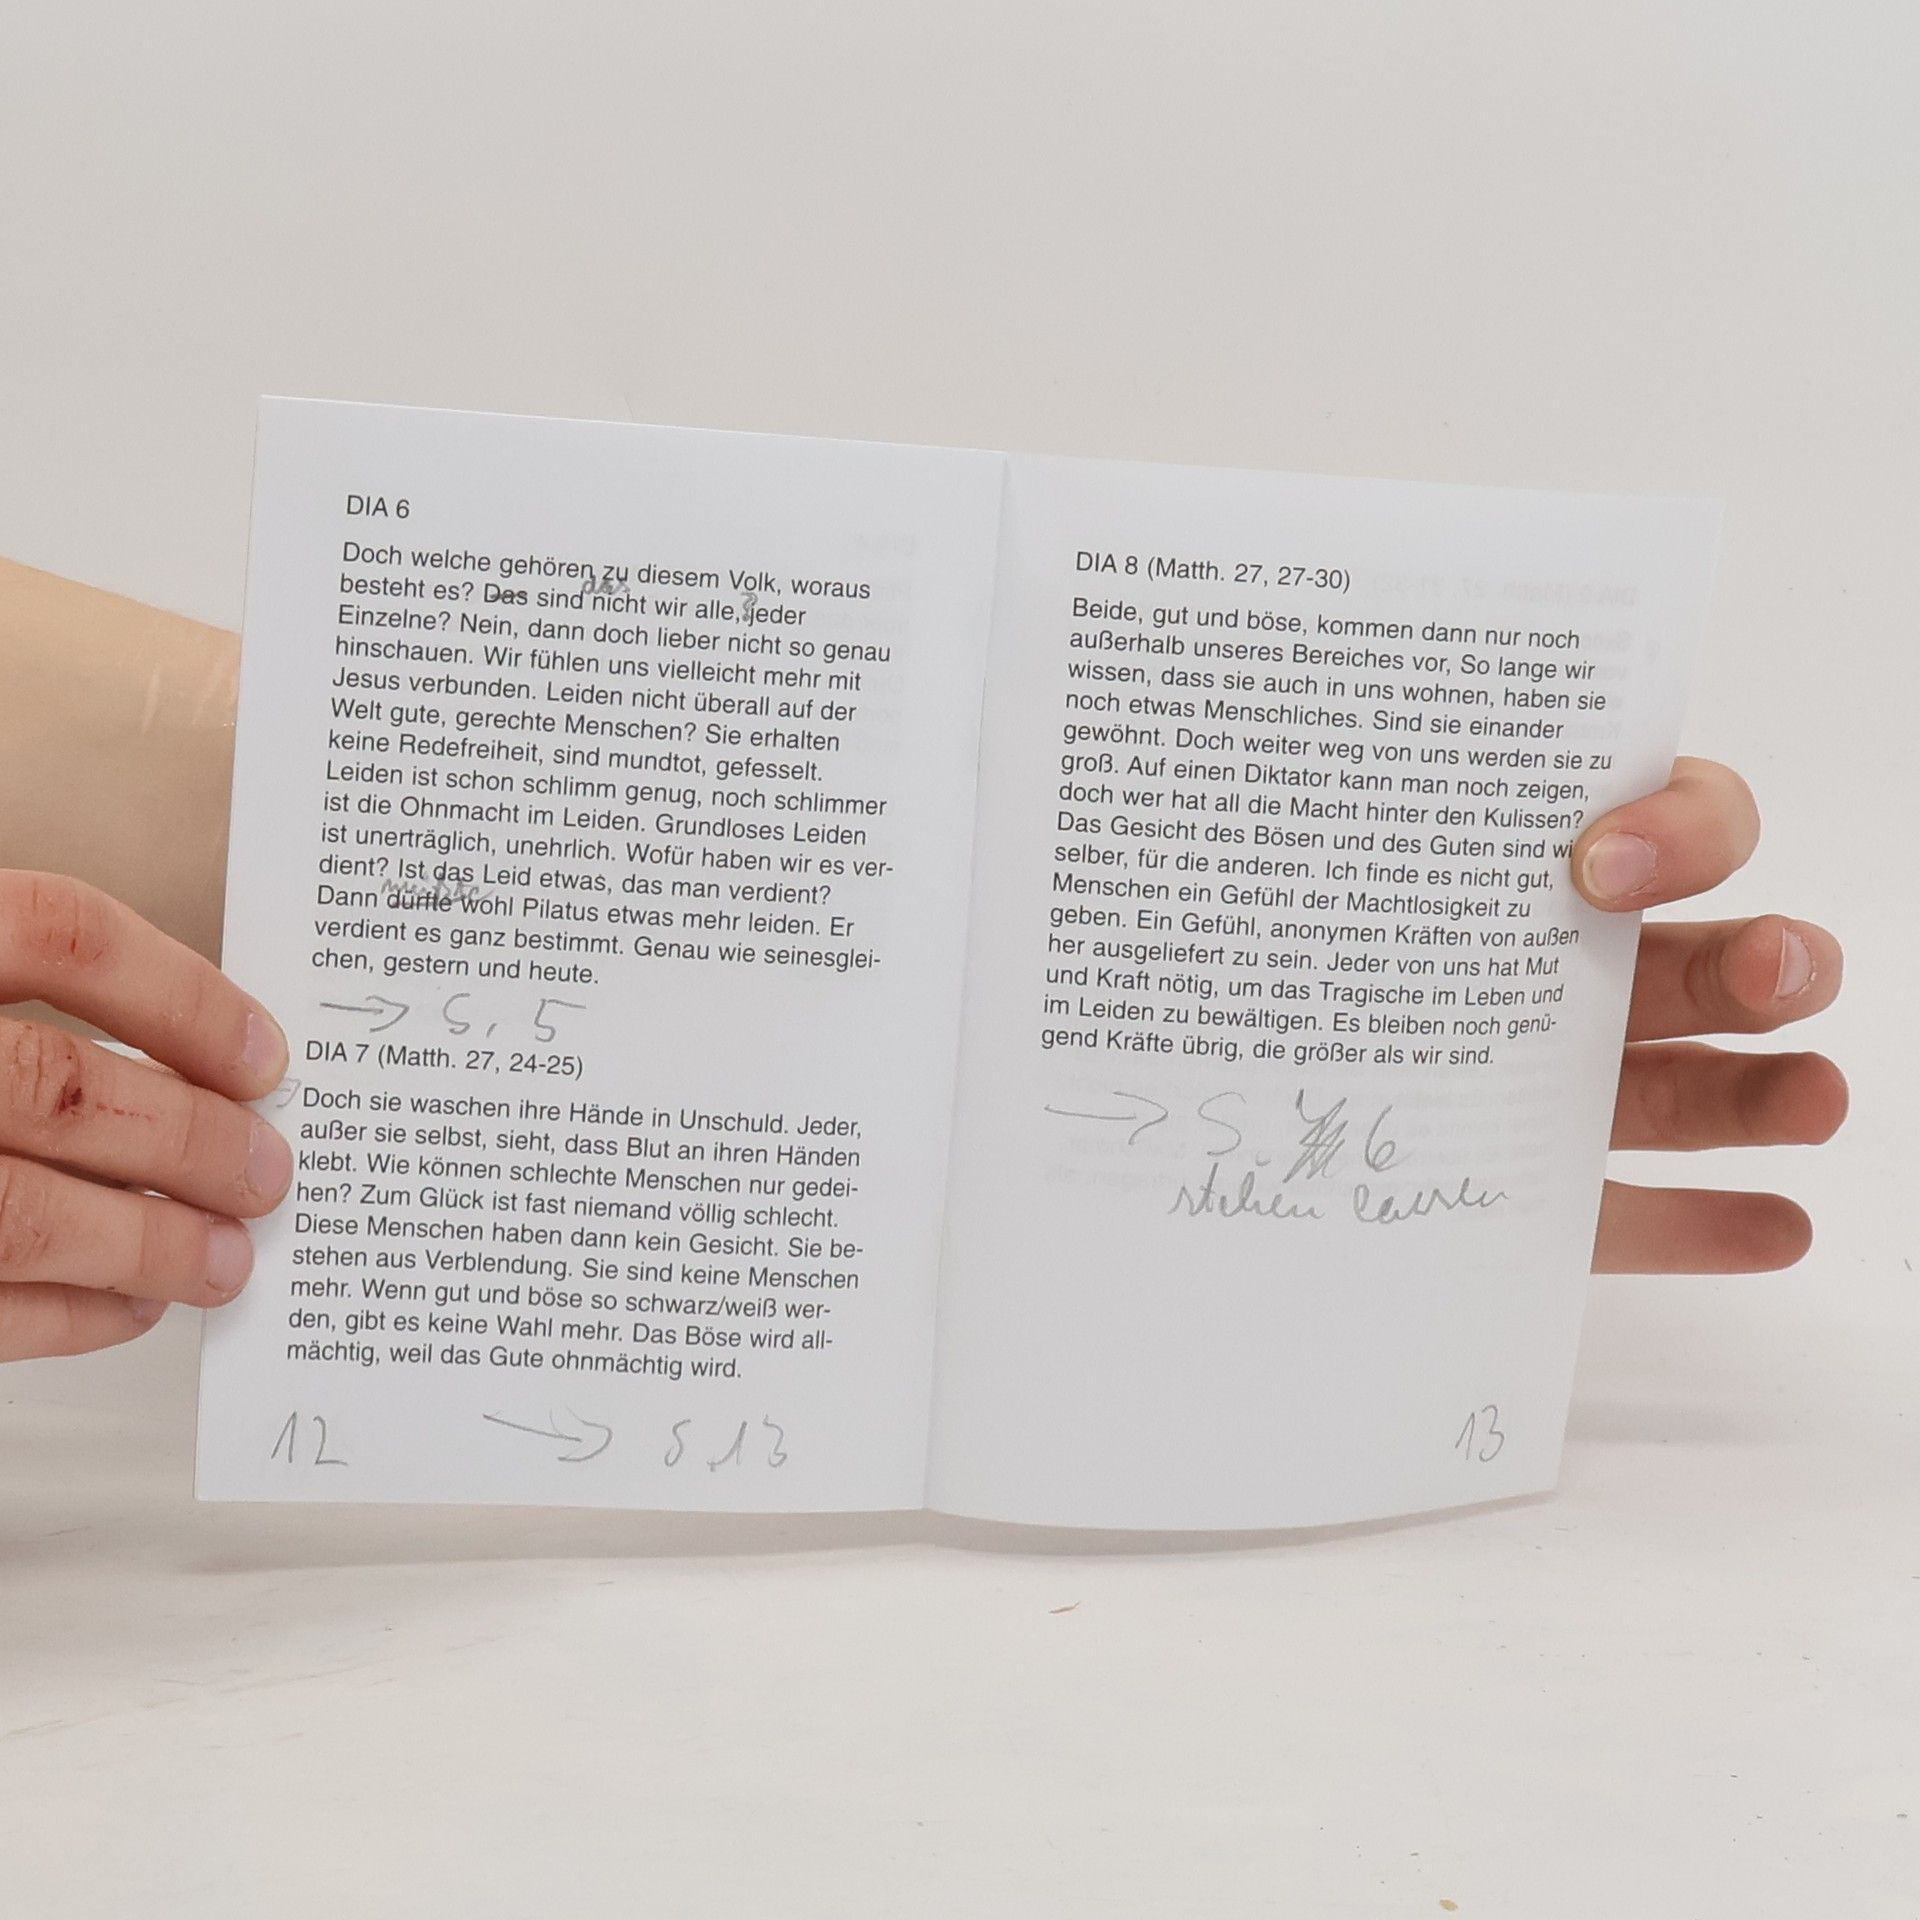 DIA 6
Doch welche gehören zu diesem Volk, woraus
das
besteht es? Das sind nicht wir alle,? jeder
Einzelne? Nein, dann doch lieber nicht so genau
hinschauen. Wir fühlen uns vielleicht mehr mit
Jesus verbunden. Leiden nicht überall auf der
Welt gute, gerechte Menschen? Sie erhalten
keine Redefreiheit, sind mundtot, gefesselt.
Leiden ist schon schlimm genug, noch schlimmer
ist die Ohnmacht im Leiden. Grundloses Leiden
ist unerträglich, unehrlich. Wofür haben wir es ver-
dient? Ist das Leid etwas, das man verdient?
müßte
Dann dürfte wohl Pilatus etwas mehr leiden. Er
verdient es ganz bestimmt. Genau wie seinesglei-
chen, gestern und heute.
→ S. 5
DIA 7 (Matth. 27, 24-25)
Doch sie waschen ihre Hände in Unschuld. Jeder,
außer sie selbst, sieht, dass Blut an ihren Händen
klebt. Wie können schlechte Menschen nur gedei-
hen? Zum Glück ist fast niemand völlig schlecht.
Diese Menschen haben dann kein Gesicht. Sie be-
stehen aus Verblendung. Sie sind keine Menschen
mehr. Wenn gut und böse so schwarz/weiß wer-
den, gibt es keine Wahl mehr. Das Böse wird all-
mächtig, weil das Gute ohnmächtig wird.
12 → S. 13
DIA 8 (Matth. 27, 27-30)
Beide, gut und böse, kommen dann nur noch
außerhalb unseres Bereiches vor, So lange wir
wissen, dass sie auch in uns wohnen, haben sie
noch etwas Menschliches. Sind sie einander
gewöhnt. Doch weiter weg von uns werden sie zu
groß. Auf einen Diktator kann man noch zeigen,
doch wer hat all die Macht hinter den Kulissen?
Das Gesicht des Bösen und des Guten sind wi
selber, für die anderen. Ich finde es nicht gut,
Menschen ein Gefühl der Machtlosigkeit zu
geben. Ein Gefühl, anonymen Kräften von außen
her ausgeliefert zu sein. Jeder von uns hat Mut
und Kraft nötig, um das Tragische im Leben und
im Leiden zu bewältigen. Es bleiben noch genü-
gend Kräfte übrig, die größer als wir sind.
→ S. 6
stehen lassen
13